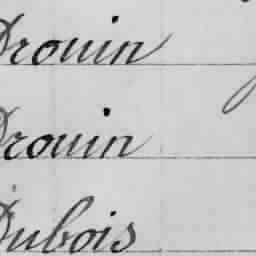 Drouin
Drouin
Dubois